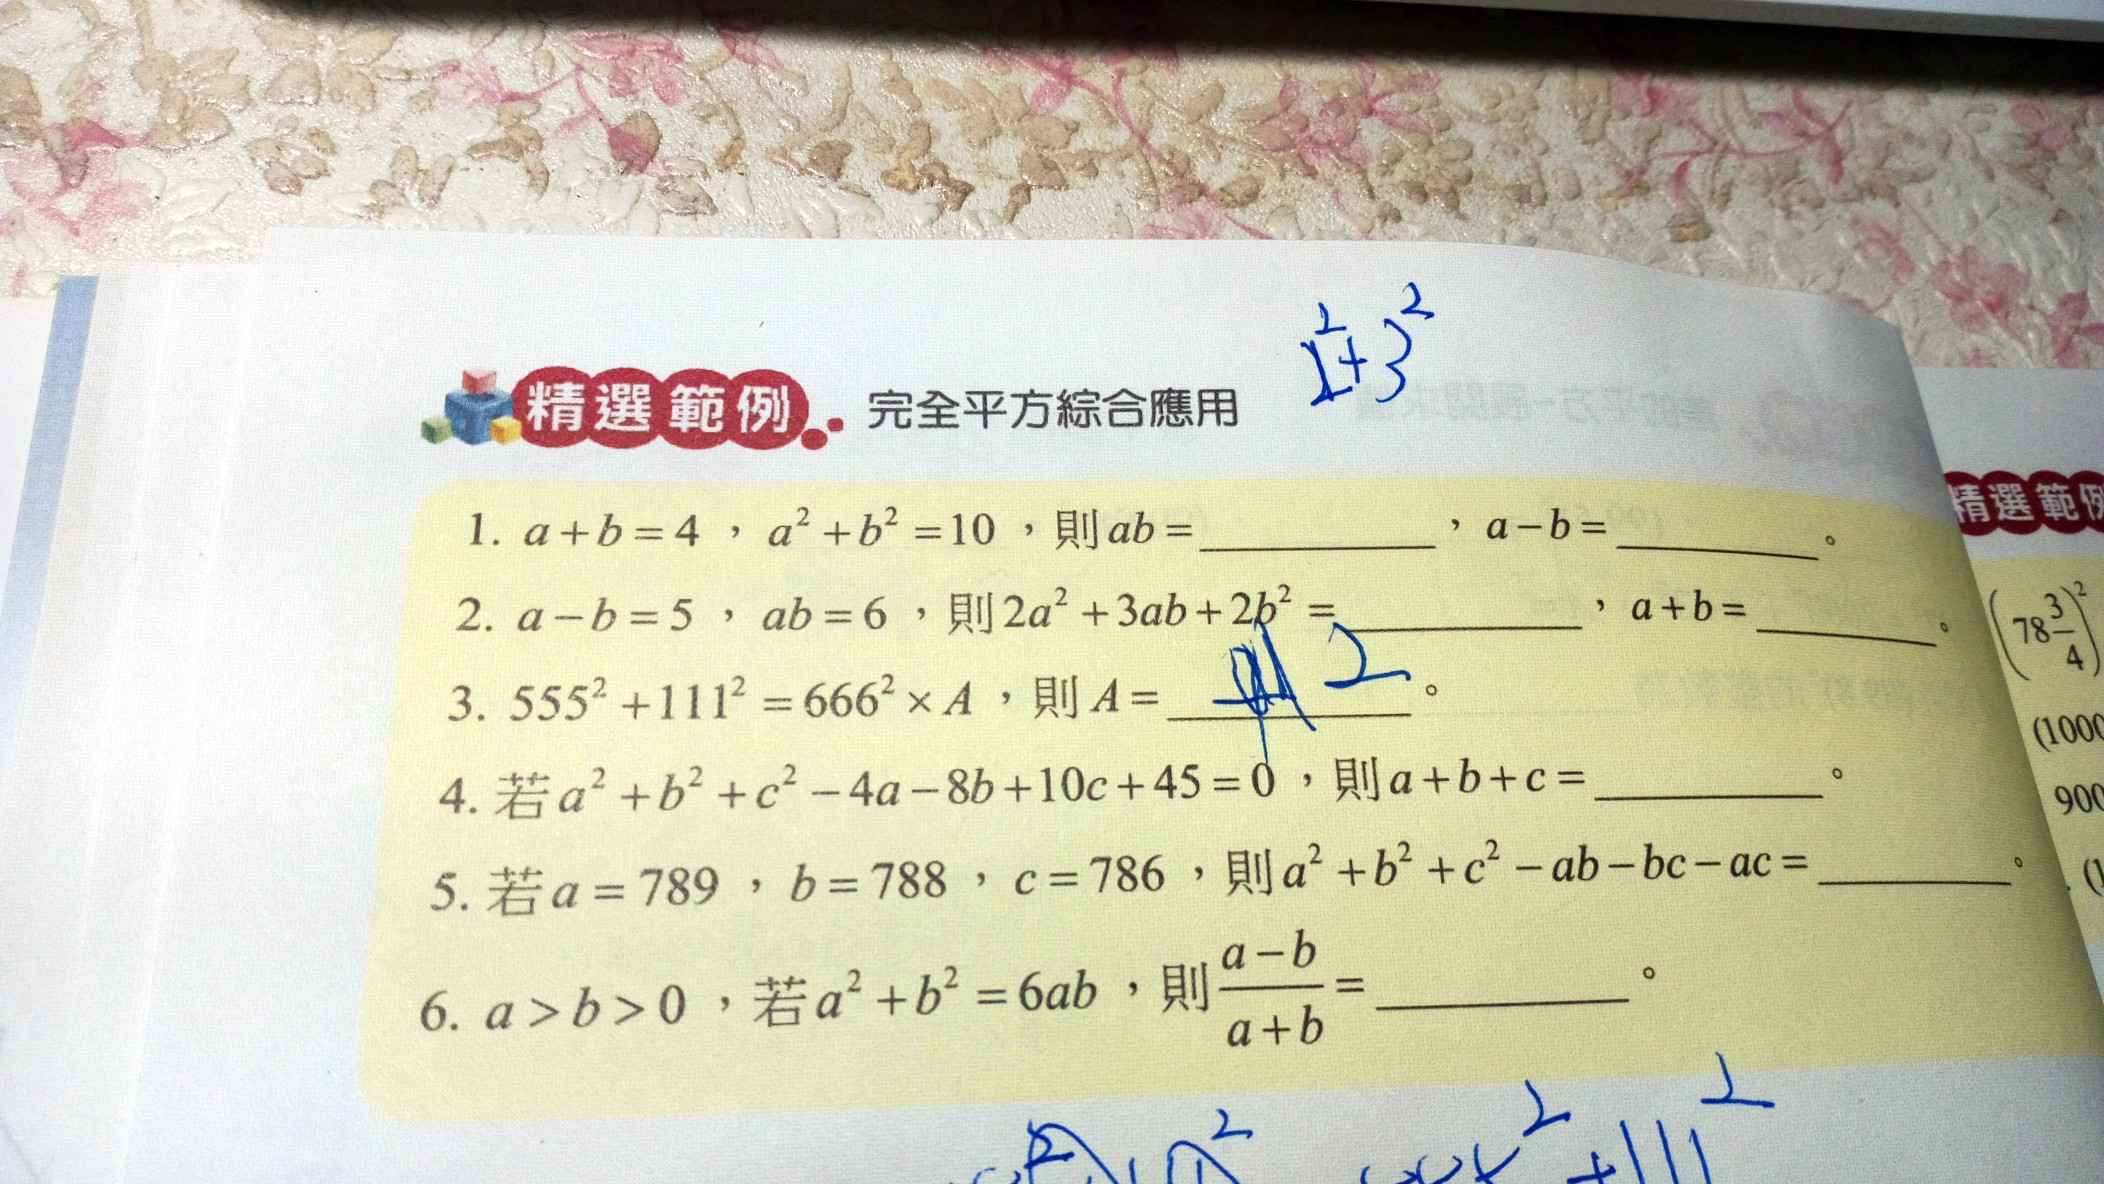 1²+3²
精選範例 完全平方綜合應用
1. a+b=4，a²+b²=10，則ab=__________，a−b=__________。
2. a−b=5，ab=6，則2a²+3ab+2b²=__________，a+b=__________。
3. 555²+111²=666²×A，則A=__________。
2
4. 若a²+b²+c²−4a−8b+10c+45=0，則a+b+c=__________。
5. 若a=789，b=788，c=786，則a²+b²+c²−ab−bc−ac=__________。
6. a>b>0，若a²+b²=6ab，則(a−b)/(a+b)=__________。
+111²
精選範例
(78 3/4)²
(1000
900